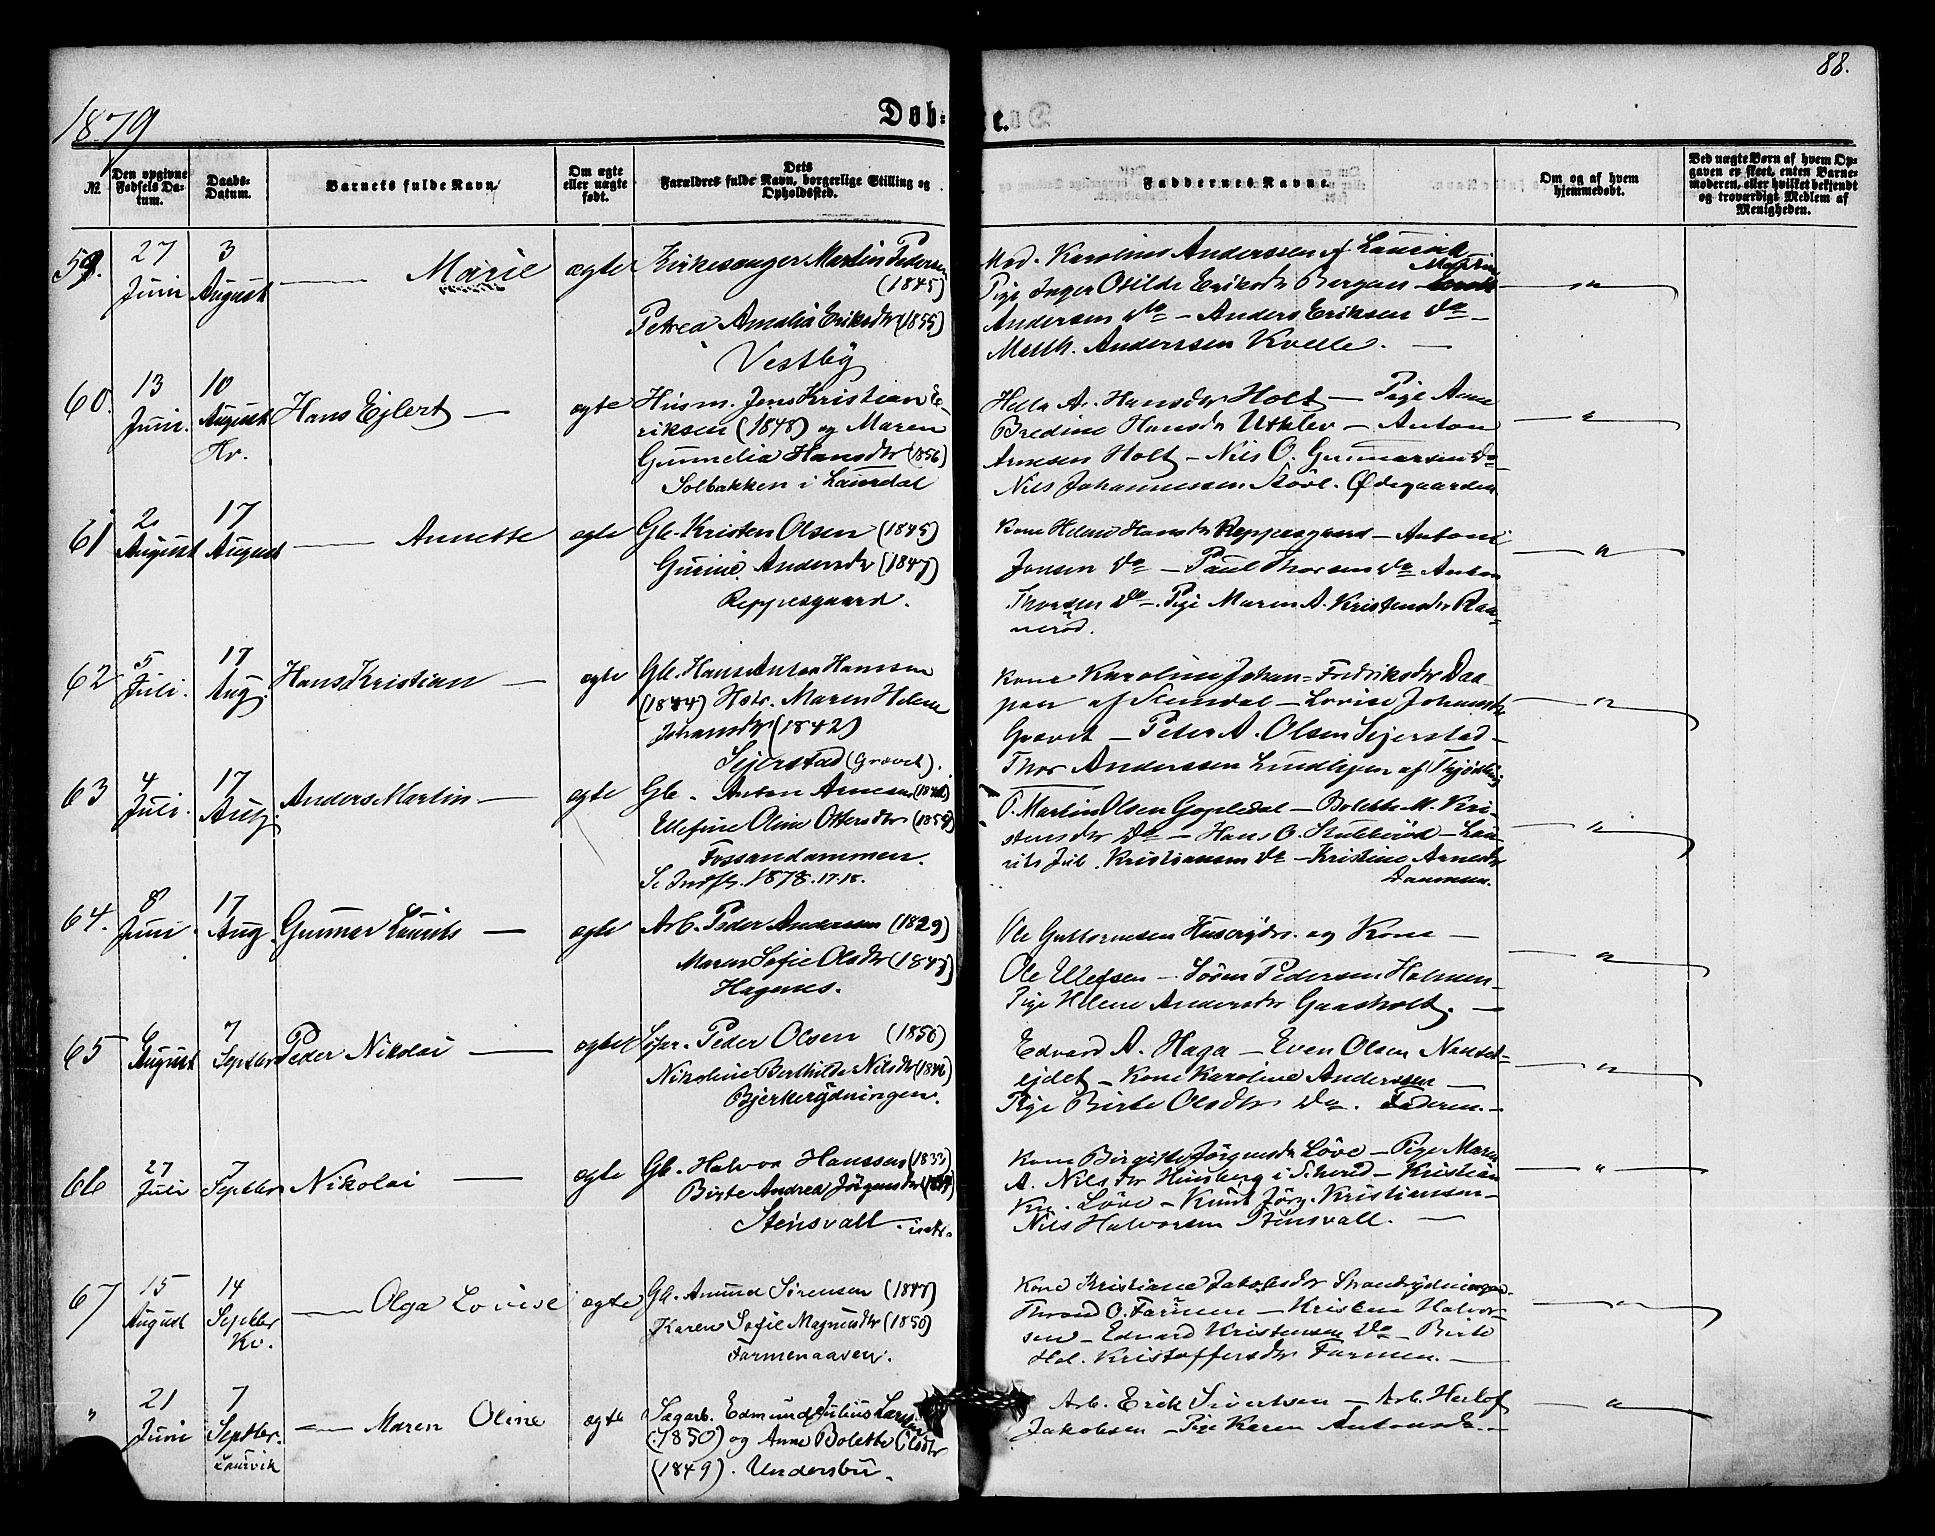 88.
1879
Døb-
te.
№
Den opgivne Fødsels Datum.
Daabs-Datum.
Barnets fulde Navn
Om ægte eller uægte født.
Dets Forældres fulde Navn, borgerlige Stilling og Opholdssted.
Faddernes Navne.
Om og af hvem hjemmedøbt.
Ved uægte Børn af hvem Opgaven er skeet, enten Barnemoderen, eller hvilket bekjendt og troværdigt Medlem af Menigheden.
59. 27 Juni 3 August Marie ægte
Kirkesanger Martin Pedersen
(1845)
Petrea Amalia Eriksdr (1855)
Vestby
Mad. Karoline Anderssen af Laurvik
Pige Inger Otilde Eriksdr Bergan
Andersen Do – Anders Eriksen Do –
Math. Anderssen Kvelle. – "
60. 13 Juni. 10 August Hv. Hans Ejlert – ægte
Husm. Jens Kristian E-
riksen (1848) og Maren
Gunnelia Hansdr (1856)
Solbakken i Laurdal
Hella A. Hansdr Holt – Pige Anne
Bredine Hansdr Utklev – Anton
Arnesen Holt – Nils O. Gunnarsen Do
Nils Johannessen Ødegaarden "
61 2 August 17 August Annette ægte
Gb. Kristen Olsen (1845)
Gurine Andersdr (1847)
Reppesgaard.
Kone Helene Hansdr Reppesgaard – Anton
Jonsen Do – Paul Thorsen Do Anton
Thorsen Do – Pige Maren A. Kristensdr Raa-
nerød. "
62 5 Juli. 17 Aug. Hans Kristian – ægte
Gb. Hans Anton Hanssen
(1844) Hstr. Maren Helene
Johansdr (1842)
Sejerstad (Gravet).
Kone Karoline Johan= Fredriksdr Daa-
pan af Slemdal – Lovise Johansdr
Gravet – Peter A. Olsen Sejerstad –
Thor Anderssen Lindhjem af Thjødling "
63 4 Juli. 17 Aug. Anders Martin – ægte
Gb. Anton Arnesen
Ellefine Oline Ottersdr
Fossandammen.
1878. 17.18.
O. Martin Olsen Gopledal – Bolette M. Kri-
stensdr Do – Hans O. Stubberød – Lau-
rits Jul. Kristiansen Do – Kristine Arnesdr
Dammen. "
64. 8 Juni 17 Aug. Gunnar Laurits – ægte
Arb. Peder Andersen (1829)
Maren Sofie Olsdr (1847)
Hagenes.
Ole Guttormsen Huserydn. og Kone –
Ole Ellefsen – Søren Pedersen Holmen –
Pige Helene Andersdr Gaasholt. – "
65 6 August 7 Septbr Peder Nikolai – ægte
Peder Olsen (1850)
Nikoline Berthilde Nilsdr (1846)
Bjerkerydningen.
Edvard A. Haga – Even Olsen Nauset-
ejdet – Kone Karoline Anderssen –
Pige Birte Olsdr Do. Faderen. – "
66 27 Juli 7 Septbr Nikolai – ægte
Gb. Halvor Hanssen (1833)
Birte Andrea Jørgensdr
Stensvall.
Kone Birgitte Jørgensdr Løve – Pige Maren
A. Nilsdr Hinsberg i Siherud – Kristian
Kn. Løve – Knut Jørg. Kristiansen –
Nils Halvorsen Stensvall. – "
67 15 August 14 Septbr Kv. Olga Lovise ægte
Gb. Amund Sørensen (1847)
Karen Sofie Magnusdr (1850)
Farmenaaven.
Kone Kristiane Jakobsdr Strandrydningen –
Thrond O. Farmen – Kristen Halvor-
sen – Edvard Kristensen Do – Birte
Hel. Kristoffersdr Farmen. – "
" 21 Juni 7 Septbr. Laurvik Maren Oline ægte
Sagarb. Edmund Julius Larsen
(1850) og Anne Bolette Olsdr
(1849). Undersbu.
Arb. Erik Sivertsen – Arb. Herlof
Jakobsen – Pige Karen Antonsdr. – "